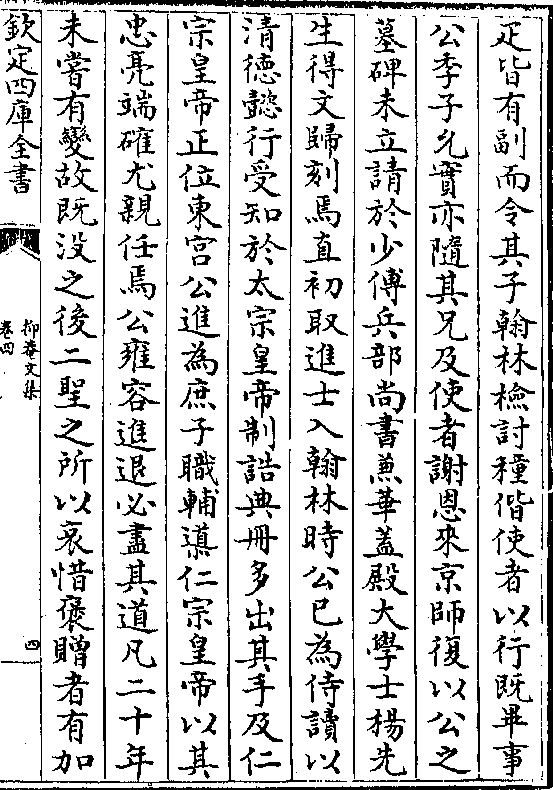 疋皆有副而令其子翰林檢討穜偕使者以行既畢事
公季子允實亦隨其兄及使者謝恩來京師復以公之
墓碑未立請於少傅兵部尚書兼華蓋殿大學士楊先
生得文歸刻焉直初取進士入翰林時公已為侍讀以
清德懿行受知於太宗皇帝制誥典冊多出其手及仁
宗皇帝正位東宮公進為庶子職輔導仁宗皇帝以其
忠亮端確尤親任焉公雍容進退必盡其道凡二十年
未嘗有變故既没之後二聖之所以哀惜褒贈者有加
欽定四庫全書
抑菴文集
卷四
四